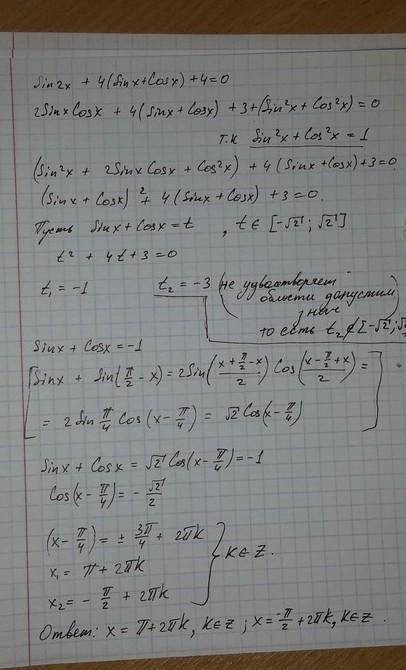 Sin2x + 4(Sinx+Cosx)+4=0
2SinxCosx + 4(Sinx+Cosx) + 3+(Sin²x+Cos²x) = 0
т.к Sin²x+Cos²x = 1
(Sin²x + 2SinxCosx+Cos²x) + 4(Sinx+Cosx)+3=0
(Sinx + Cosx)² + 4(Sinx+Cosx) + 3=0
Пусть Sinx+Cosx=t , t ∈ [-√2; √2]
t² + 4t+3=0
t₁ = -1 t₂ = -3 (не удовлетворяет
области допустим)
знач
то есть t₂ ∉ [-√2; √2
Sinx + Cosx=-1
[Sinx + Sin(π/2 - x) = 2Sin((x+π/2-x)/2) Cos((x-π/2+x)/2) =
= 2Sin π/4 Cos(x-π/4) = √2 Cos(x-π/4)]
Sinx + Cosx = √2 Cos(x-π/4)=-1
Cos(x-π/4) = -√2/2
(x-π/4) = ± 3π/4 + 2πk
x₁ = π+2πk } k∈Z.
x₂ = -π/2 + 2πk
Ответ: x = π+2πk, k∈Z ; x=-π/2+2πk, k∈Z.